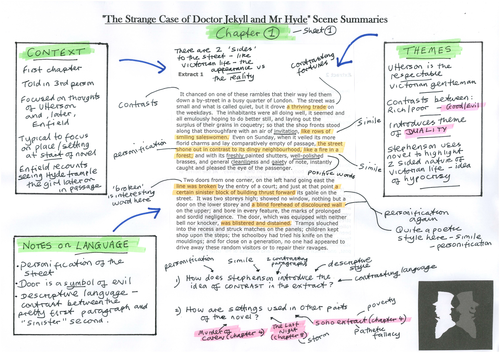 "The Strange Case of Doctor Jekyll and Mr Hyde" Scene Summaries
Chapter 1
Sheet 1
There are 2 'sides'
to the street - like
victorian life - the
appearance vs
the reality
contrasting
fortunes
Extract 1
CONTEXT
First chapter
Told in 3rd person
Focused on thoughts
of Utterson
and, later,
Enfield
Typical to focus
on place/setting
at start of novel
Enfield recounts
seeing Hyde trample
the girl later on
in passage
Contrasts
personification
'broken'
is interesting
word here
It chanced on one of these rambles that their way led them
down a by-street in a busy quarter of London. The street was
small and what is called quiet, but it drove a thriving trade on
the weekdays. The inhabitants were all doing well, it seemed and
all emulously hoping to do better still, and laying out the
surplus of their grains in coquetry; so that the shop fronts stood
along that thoroughfare with an air of invitation, like rows of
smiling saleswomen. Even on Sunday, when it veiled its more
florid charms and lay comparatively empty of passage, the street
shone out in contrast to its dingy neighbourhood, like a fire in a
forest; and with its freshly painted shutters, well-polished
brasses, and general cleanliness and gaiety of note, instantly
caught and pleased the eye of the passenger.
positive words
Two doors from one corner, on the left hand going east the
line was broken by the entry of a court; and just at that point a
certain sinister block of building thrust forward its gable on the
street. It was two storeys high; showed no window, nothing but a
door on the lower storey and a blind forehead of discoloured wall
on the upper; and bore in every feature, the marks of prolonged
and sordid negligence. The door, which was equipped with neither
bell nor knocker, was blistered and distained. Tramps slouched
into the recess and struck matches on the panels; children kept
shop upon the steps; the schoolboy had tried his knife on the
mouldings; and for close on a generation, no one had appeared to
drive away these random visitors or to repair their ravages.
Simile
Simile
THEMES
Utterson is the
respectable
victorian gentleman
Contrasts between:
Rich/poor - Good/evil
Introduces theme
of DUALITY
Stephenson uses
novel to highlight
2 sided nature of
victorian life - idea
of hypocrosy
personification
again
Quite a poetic
style here - simile
- personification
NOTES on LANGUAGE
Personification of
the street
Door is a symbol of evil
Descriptive language -
contrast between the
pretty first paragraph and
"sinister" second.
personification
simile
contrasting
paragraphs
descriptive
style
contrasting language
1) How does Stephenson introduce the
idea of contrast in the extract?
2) How are settings used in other parts
of the novel?
Murder of
Carew (chapter 4)
The Last
Night
(chapter 8)
storm
Soho extract (chapter 4)
poverty
pathetic
fallacy